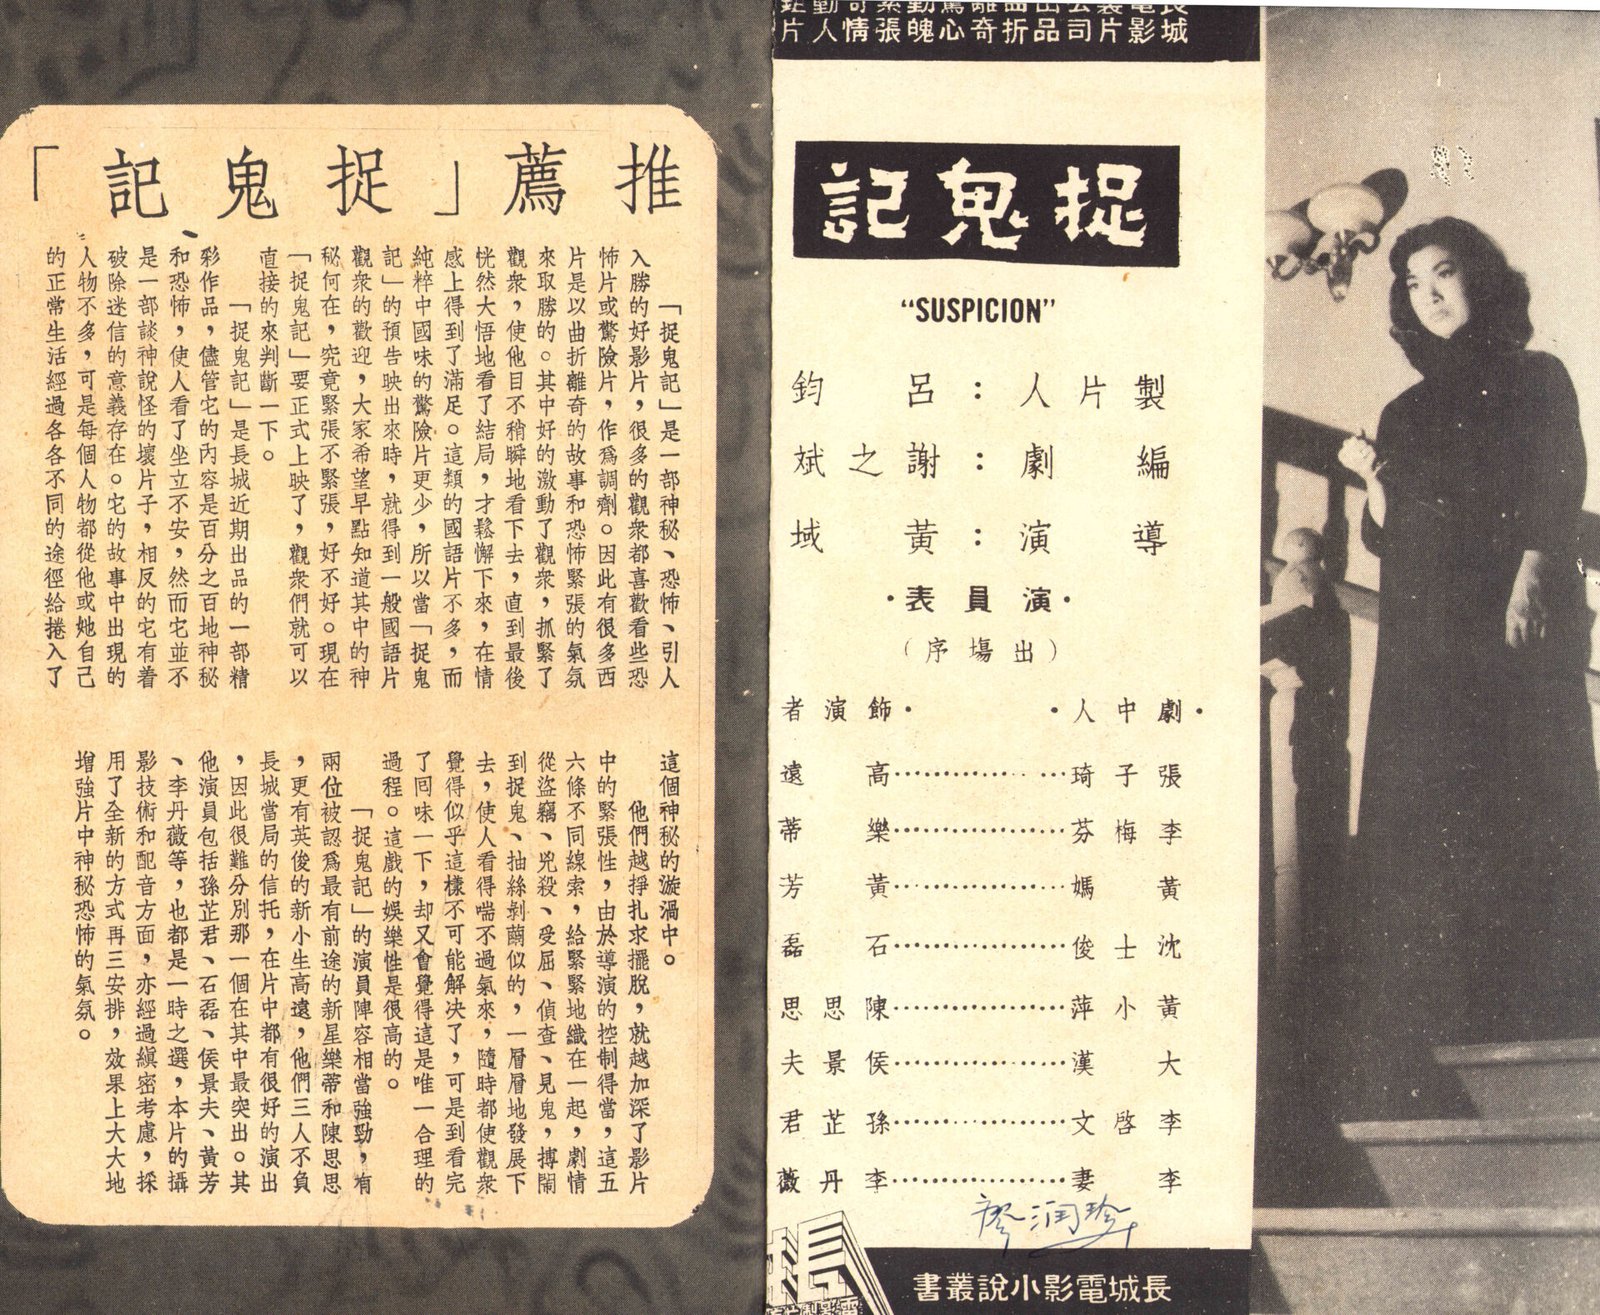 推薦「捉鬼記」
「捉鬼記」是一部神秘、恐怖、引人
入勝的好影片，很多的觀衆都喜歡看些恐
怖片或驚險片，作爲調劑。因此有很多西
片是以曲折離奇的故事和恐怖緊張的氣氛
來取勝的。其中好的激動了觀衆，抓緊了
觀衆，使他目不稍瞬地看下去，直到最後
恍然大悟地看了結局，才鬆懈下來，在情
感上得到了滿足。這類的國語片不多，而
純粹中國味的驚險片更少，所以當「捉鬼
記」的預告映出來時，就得到一般國語片
觀衆的歡迎，大家希望早點知道其中的神
秘何在，究竟緊張不緊張，好不好。現在
「捉鬼記」要正式上映了，觀衆們就可以
直接的來判斷一下。
「捉鬼記」是長城近期出品的一部精
彩作品，儘管它的內容是百分之百地神秘
和恐怖，使人看了坐立不安，然而它並不
是一部談神說怪的壞片子，相反的它有着
破除迷信的意義存在。它的故事中出現的
人物不多，可是每個人物都從他或她自己
的正常生活經過各各不同的途徑給捲入了
這個神秘的漩渦中。
他們越掙扎求擺脫，就越加深了影片
中的緊張性，由於導演的控制得當，這五
六條不同線索，給緊緊地織在一起，劇情
從盜竊、兇殺、受屈、偵查、見鬼，搏鬭
到捉鬼、抽絲剝繭似的，一層層地發展下
去，使人看得喘不過氣來，隨時都使觀衆
覺得似乎這樣不可能解決了，可是到看完
了囘味一下，却又會覺得這是唯一合理的
過程。這戲的娛樂性是很高的。
「捉鬼記」的演員陣容相當強勁，有
兩位被認爲最有前途的新星樂蒂和陳思思
，更有英俊的新小生高遠，他們三人不負
長城當局的信托，在片中都有很好的演出
，因此很難分別那一個在其中最突出。其
他演員包括孫芷君、石磊、侯景夫、黃芳
、李丹薇等，也都是一時之選，本片的攝
影技術和配音方面，亦經過縝密考慮，採
用了全新的方式再三安排，效果上大大地
增強片中神秘恐怖的氣氛。
長城電影製片公司出品曲折離奇驚心動魄緊張奇情動人鉅片
捉鬼記
“SUSPICION”
製片人：呂鈞
編劇：謝之斌
導演：黃域
·演員表·
（出場序）
·劇中人· ·飾演者
張子琦……………高遠
李梅芬……………樂蒂
黃媽……………黃芳
沈士俊……………石磊
黃小萍……………陳思思
大漢……………侯景夫
李啓文……………孫芷君
李妻……………李丹薇
廖潤珍
長城電影小說叢書